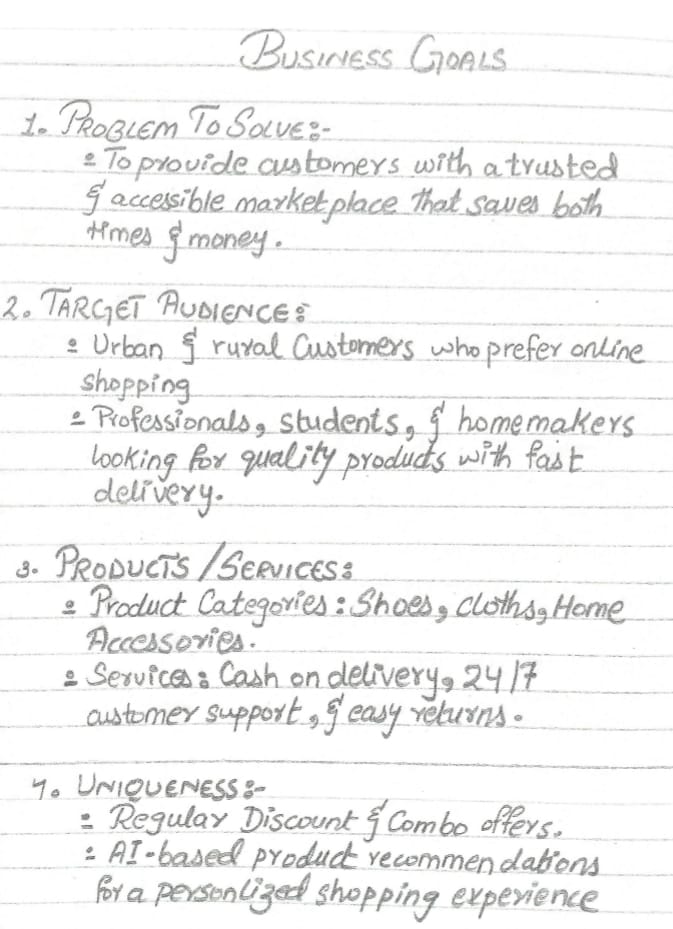 BUSINESS GOALS
1. PROBLEM TO SOLVE:-
• To provide customers with a trusted
& accessible marketplace that saves both
times & money.
2. TARGET AUDIENCE:
• Urban & rural Customers who prefer online
shopping
• Professionals, students, & homemakers
looking for quality products with fast
delivery.
3. PRODUCTS / SERVICES:
• Product Categories: Shoes, cloths, Home
Accessories.
• Services: Cash on delivery, 24/7
customer support, & easy returns.
4. UNIQUENESS:-
• Regular Discount & Combo offers.
• AI-based product recommendations
for a personlized shopping experience